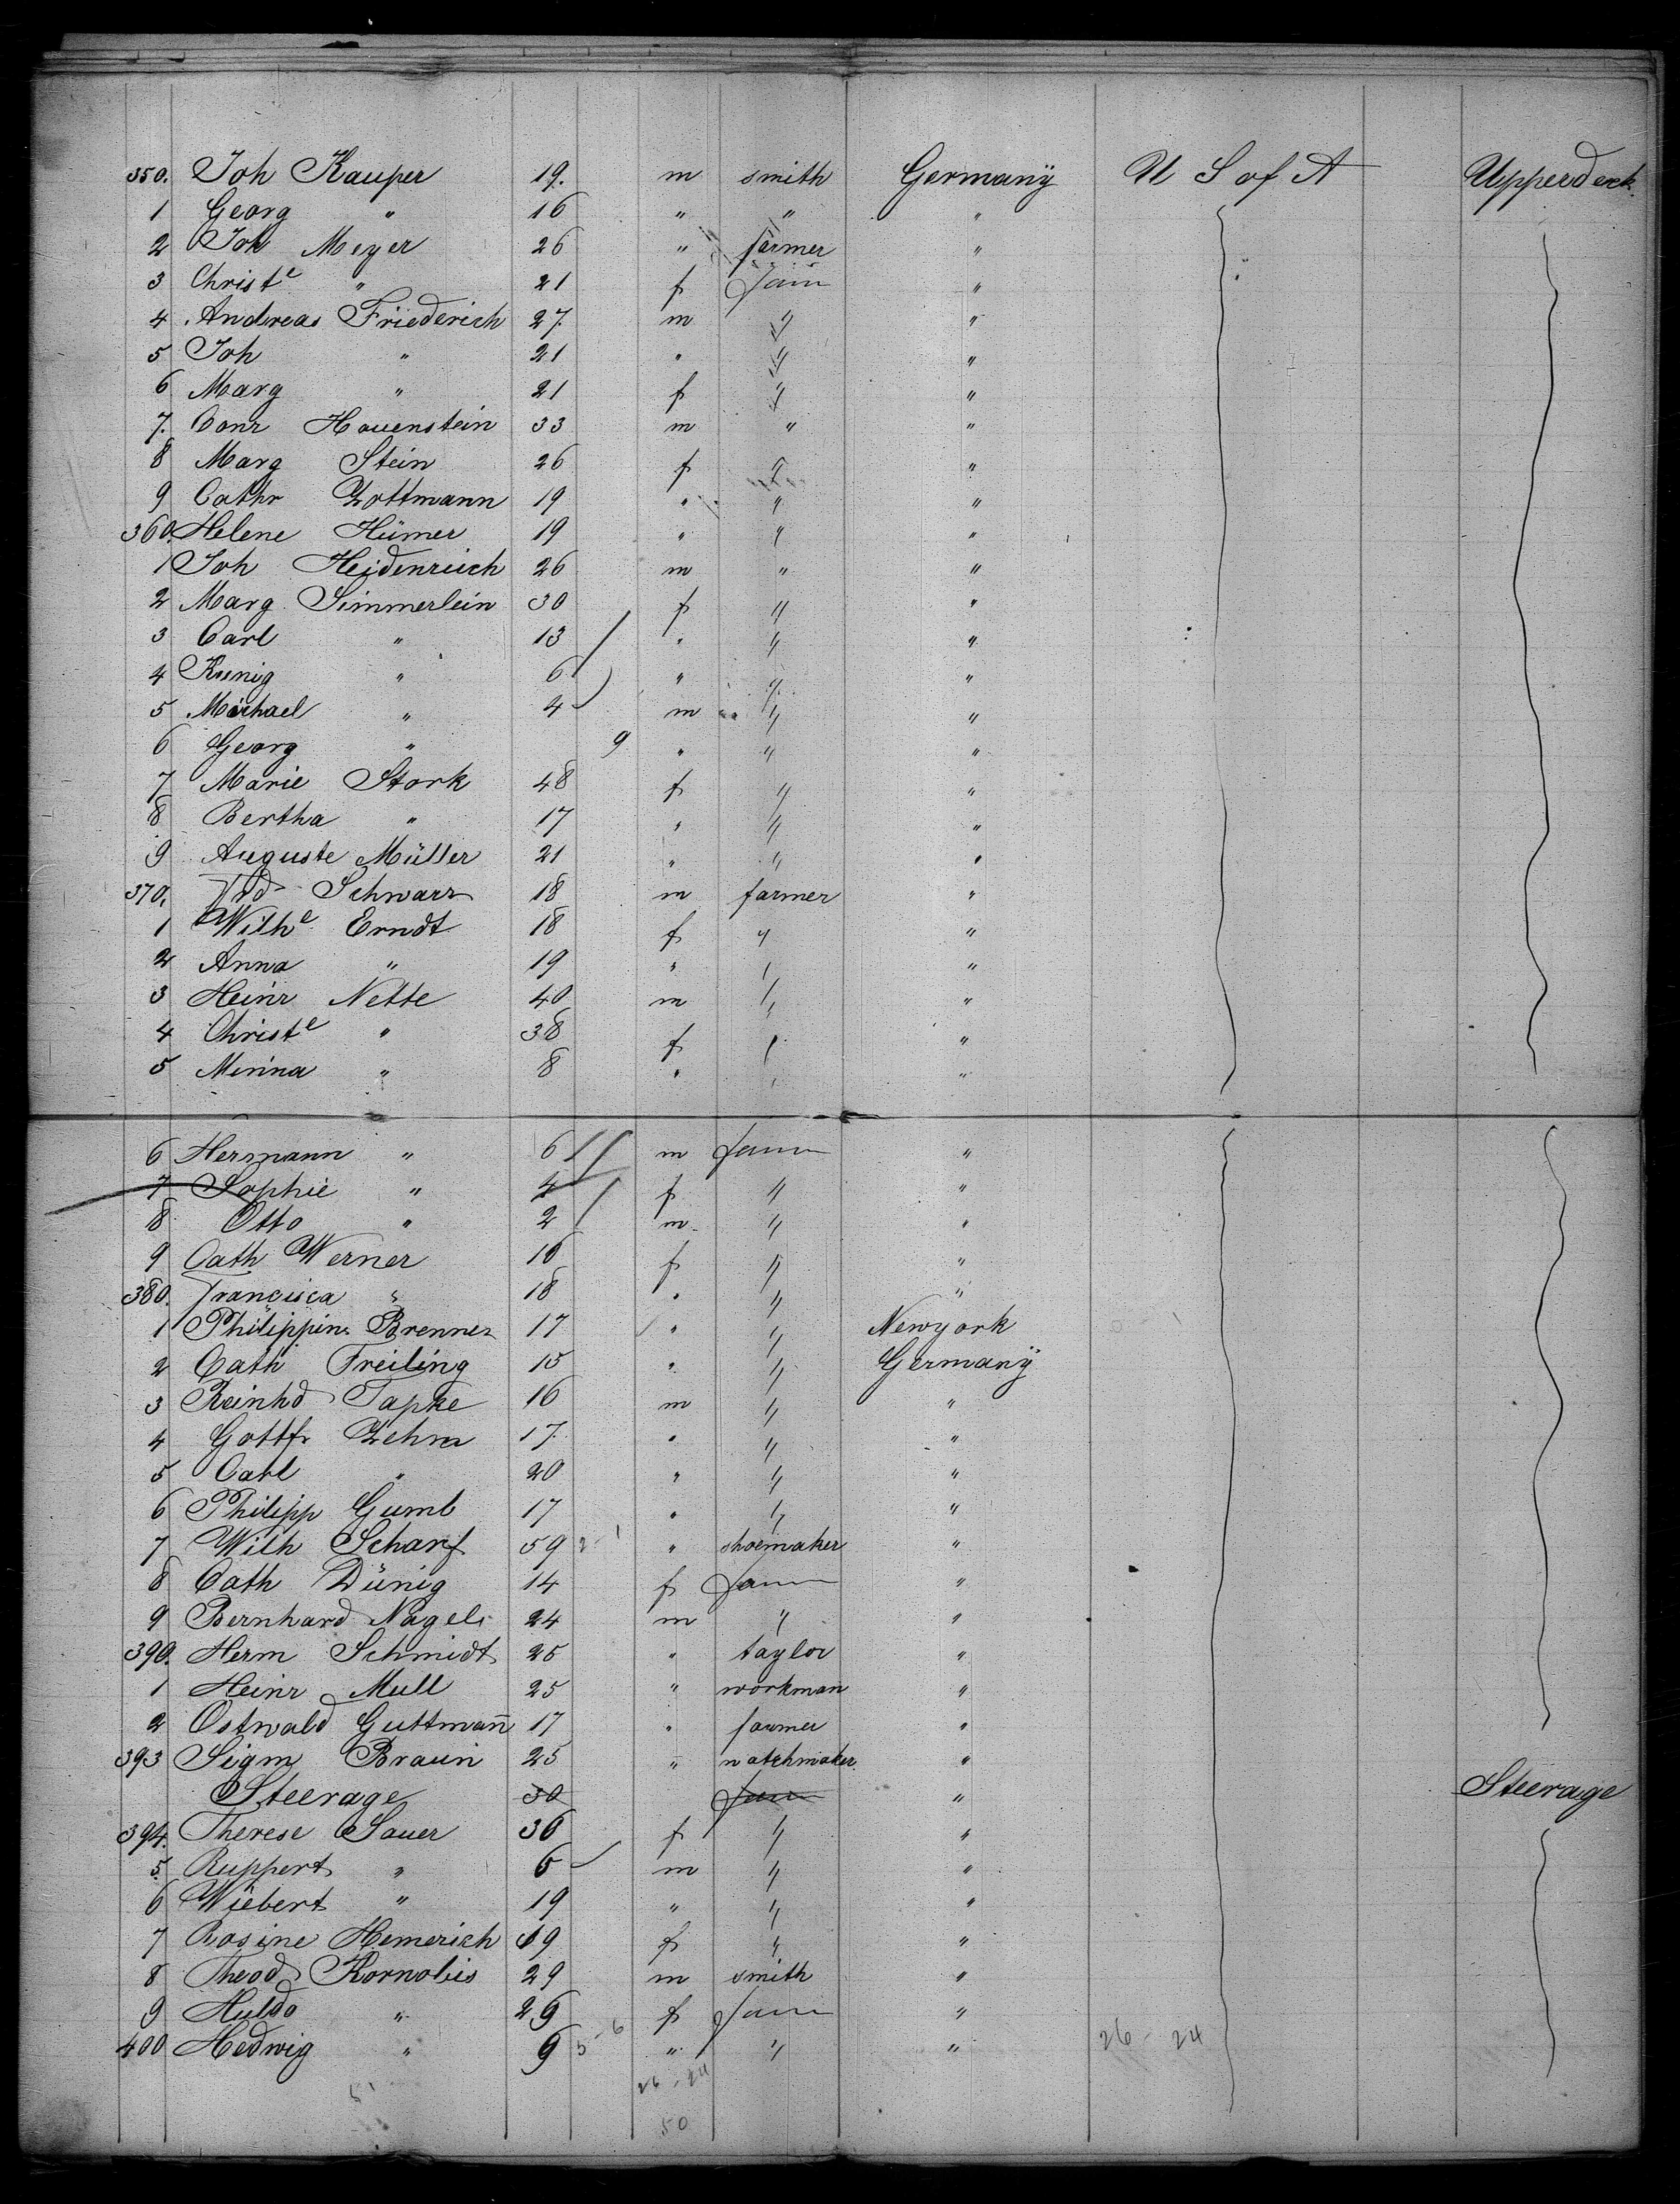 350. Joh Kauper 19. m smith Germany U S of A Upperdeck
1 Georg " 16 " " "
2 Joh Meyer 26 " farmer "
3 Christe " 21 f fam "
4 Andreas Friederich 27. m " "
5 Joh " 21 " " "
6 Marg " 21 f " "
7. Conr Hauenstein 33 m " "
8 Marg Stein 26 f " "
9 Cathr Zottmann 19 " " "
360. Helene Hümer 19 " " "
1 Joh Heidenreich 26 m " "
2 Marg Simmerlein 30 f " "
3 Carl " 13 " " "
4 Kunig " 6 " " "
5 Michael " 4 m " "
6 Georg " 9 " " "
7 Marie Stork 48 f " "
8 Bertha " 17 " " "
9 Auguste Müller 21 " " "
370. Frd Schwarz 18 m farmer "
1 Wilhe Erndt 18 f " "
2 Anna " 19 " " "
3 Heinr Nette 40 m " "
4 Christe " 38 f " "
5 Minna " 8 " " "
6 Hermann " 6 m fam "
7 Sophie " 4 f " "
8 Otto " 2 m " "
9 Cath Werner 16 f " "
380. Francisca " 18 " " "
1 Philippine Brenner 17 " " Newyork
2 Cath Freiling 15 " " Germany
3 Reinhd Tapke 16 m " "
4 Gottfr Zehm 17. " " "
5 Carl " 20 " " "
6 Philipp Gumb 17 " " "
7 Wilh Scharf 59 2-1 " shoemaker "
8 Cath Dünig 14 f fam "
9 Bernhard Nagels 24 m " "
390. Herm Schmidt 25 " taylor "
1 Heinr Mull 25 " workman "
2 Ostwald Guttmañ 17 " farmer "
393 Sigm Braun 25 " watchmaker "
Steerage 30 fam " Steerage
394. Therese Sauer 36 f " "
5. Ruppert " 6 m " "
6 Wiebert " 19 " " "
7 Rosine Hemerich 19 f " "
8 Theod Kornobis 29 m smith "
9 Hulda " 29 f fam "
400 Hedwig " 9 5-6 " " " 26 - 24
26 - 24
50